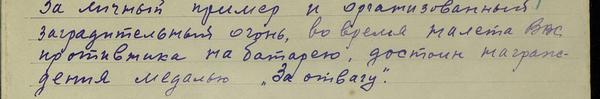 За личный пример и организованный
заградительный огонь, во время налета ВВС
противника на батарею, достоин награж-
дения медалью „За отвагу".